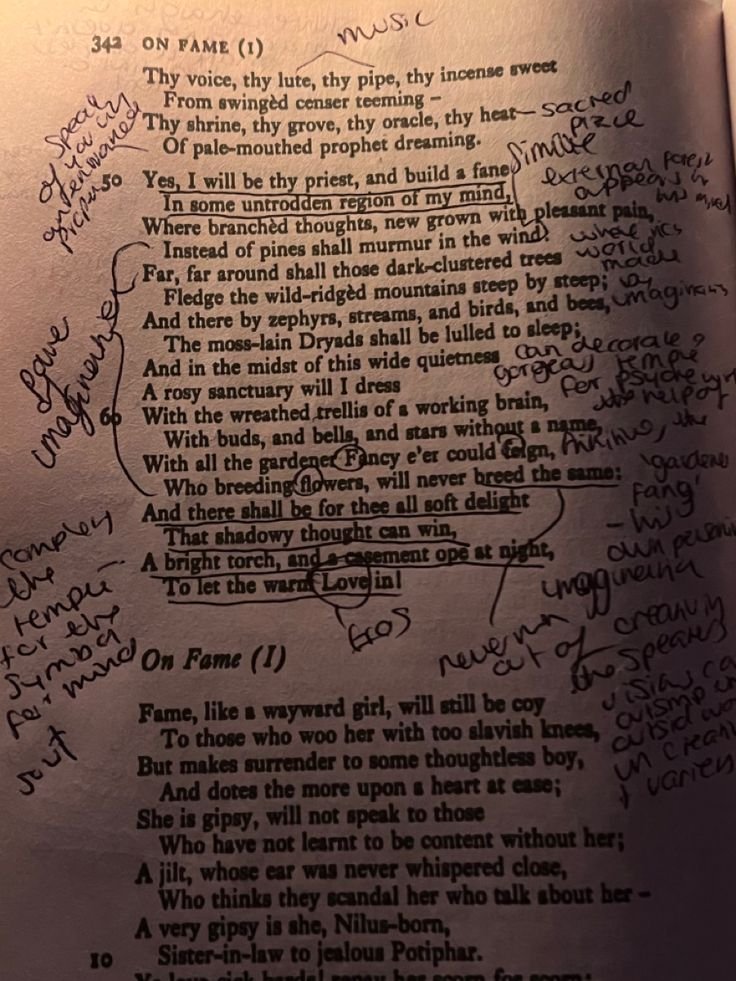 music
342 ON FAME (I)
Thy voice, thy lute, thy pipe, thy incense sweet
From swingèd censer teeming –
Thy shrine, thy grove, thy oracle, thy heat
sacred
place
Of pale-mouthed prophet dreaming.
50 Yes, I will be thy priest, and build a fane
external forest
appears in
his mind
In some untrodden region of my mind,
Where branchèd thoughts, new grown with pleasant pain,
Instead of pines shall murmur in the wind:
Far, far around shall those dark-clustered trees
world
made
by
Fledge the wild-ridgèd mountains steep by steep;
And there by zephyrs, streams, and birds, and bees,
The moss-lain Dryads shall be lulled to sleep;
And in the midst of this wide quietness
can decorate a
gorgeous temple
for psyche with
the help of
A rosy sanctuary will I dress
60 With the wreathed trellis of a working brain,
With buds, and bells, and stars without a name,
With all the gardener Fancy e'er could feign,
the
'gardener
fancy'
- his
own
Who breeding flowers, will never breed the same:
And there shall be for thee all soft delight
That shadowy thought can win,
A bright torch, and a casement ope at night,
To let the warm Love in!
Eros
never run
out of creativity
the speakers
complex
the
temple
for the
symbol
for mind
soul
On Fame (I)
Fame, like a wayward girl, will still be coy
To those who woo her with too slavish knees,
But makes surrender to some thoughtless boy,
And dotes the more upon a heart at ease;
She is gipsy, will not speak to those
Who have not learnt to be content without her;
A jilt, whose ear was never whispered close,
Who thinks they scandal her who talk about her –
A very gipsy is she, Nilus-born,
10 Sister-in-law to jealous Potiphar.